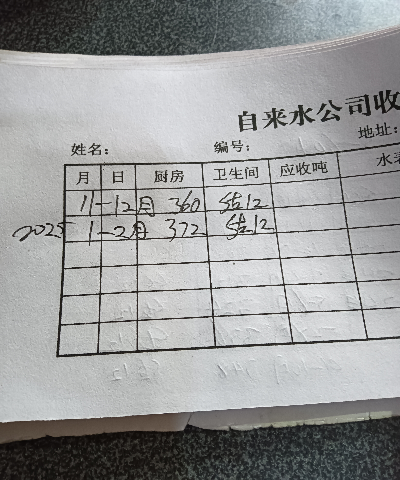 自来水公司收
姓名： 编号： 地址：
月 日 厨房 卫生间 应收吨 水
11-12月 360 结12
2025 1-2月 372 结12